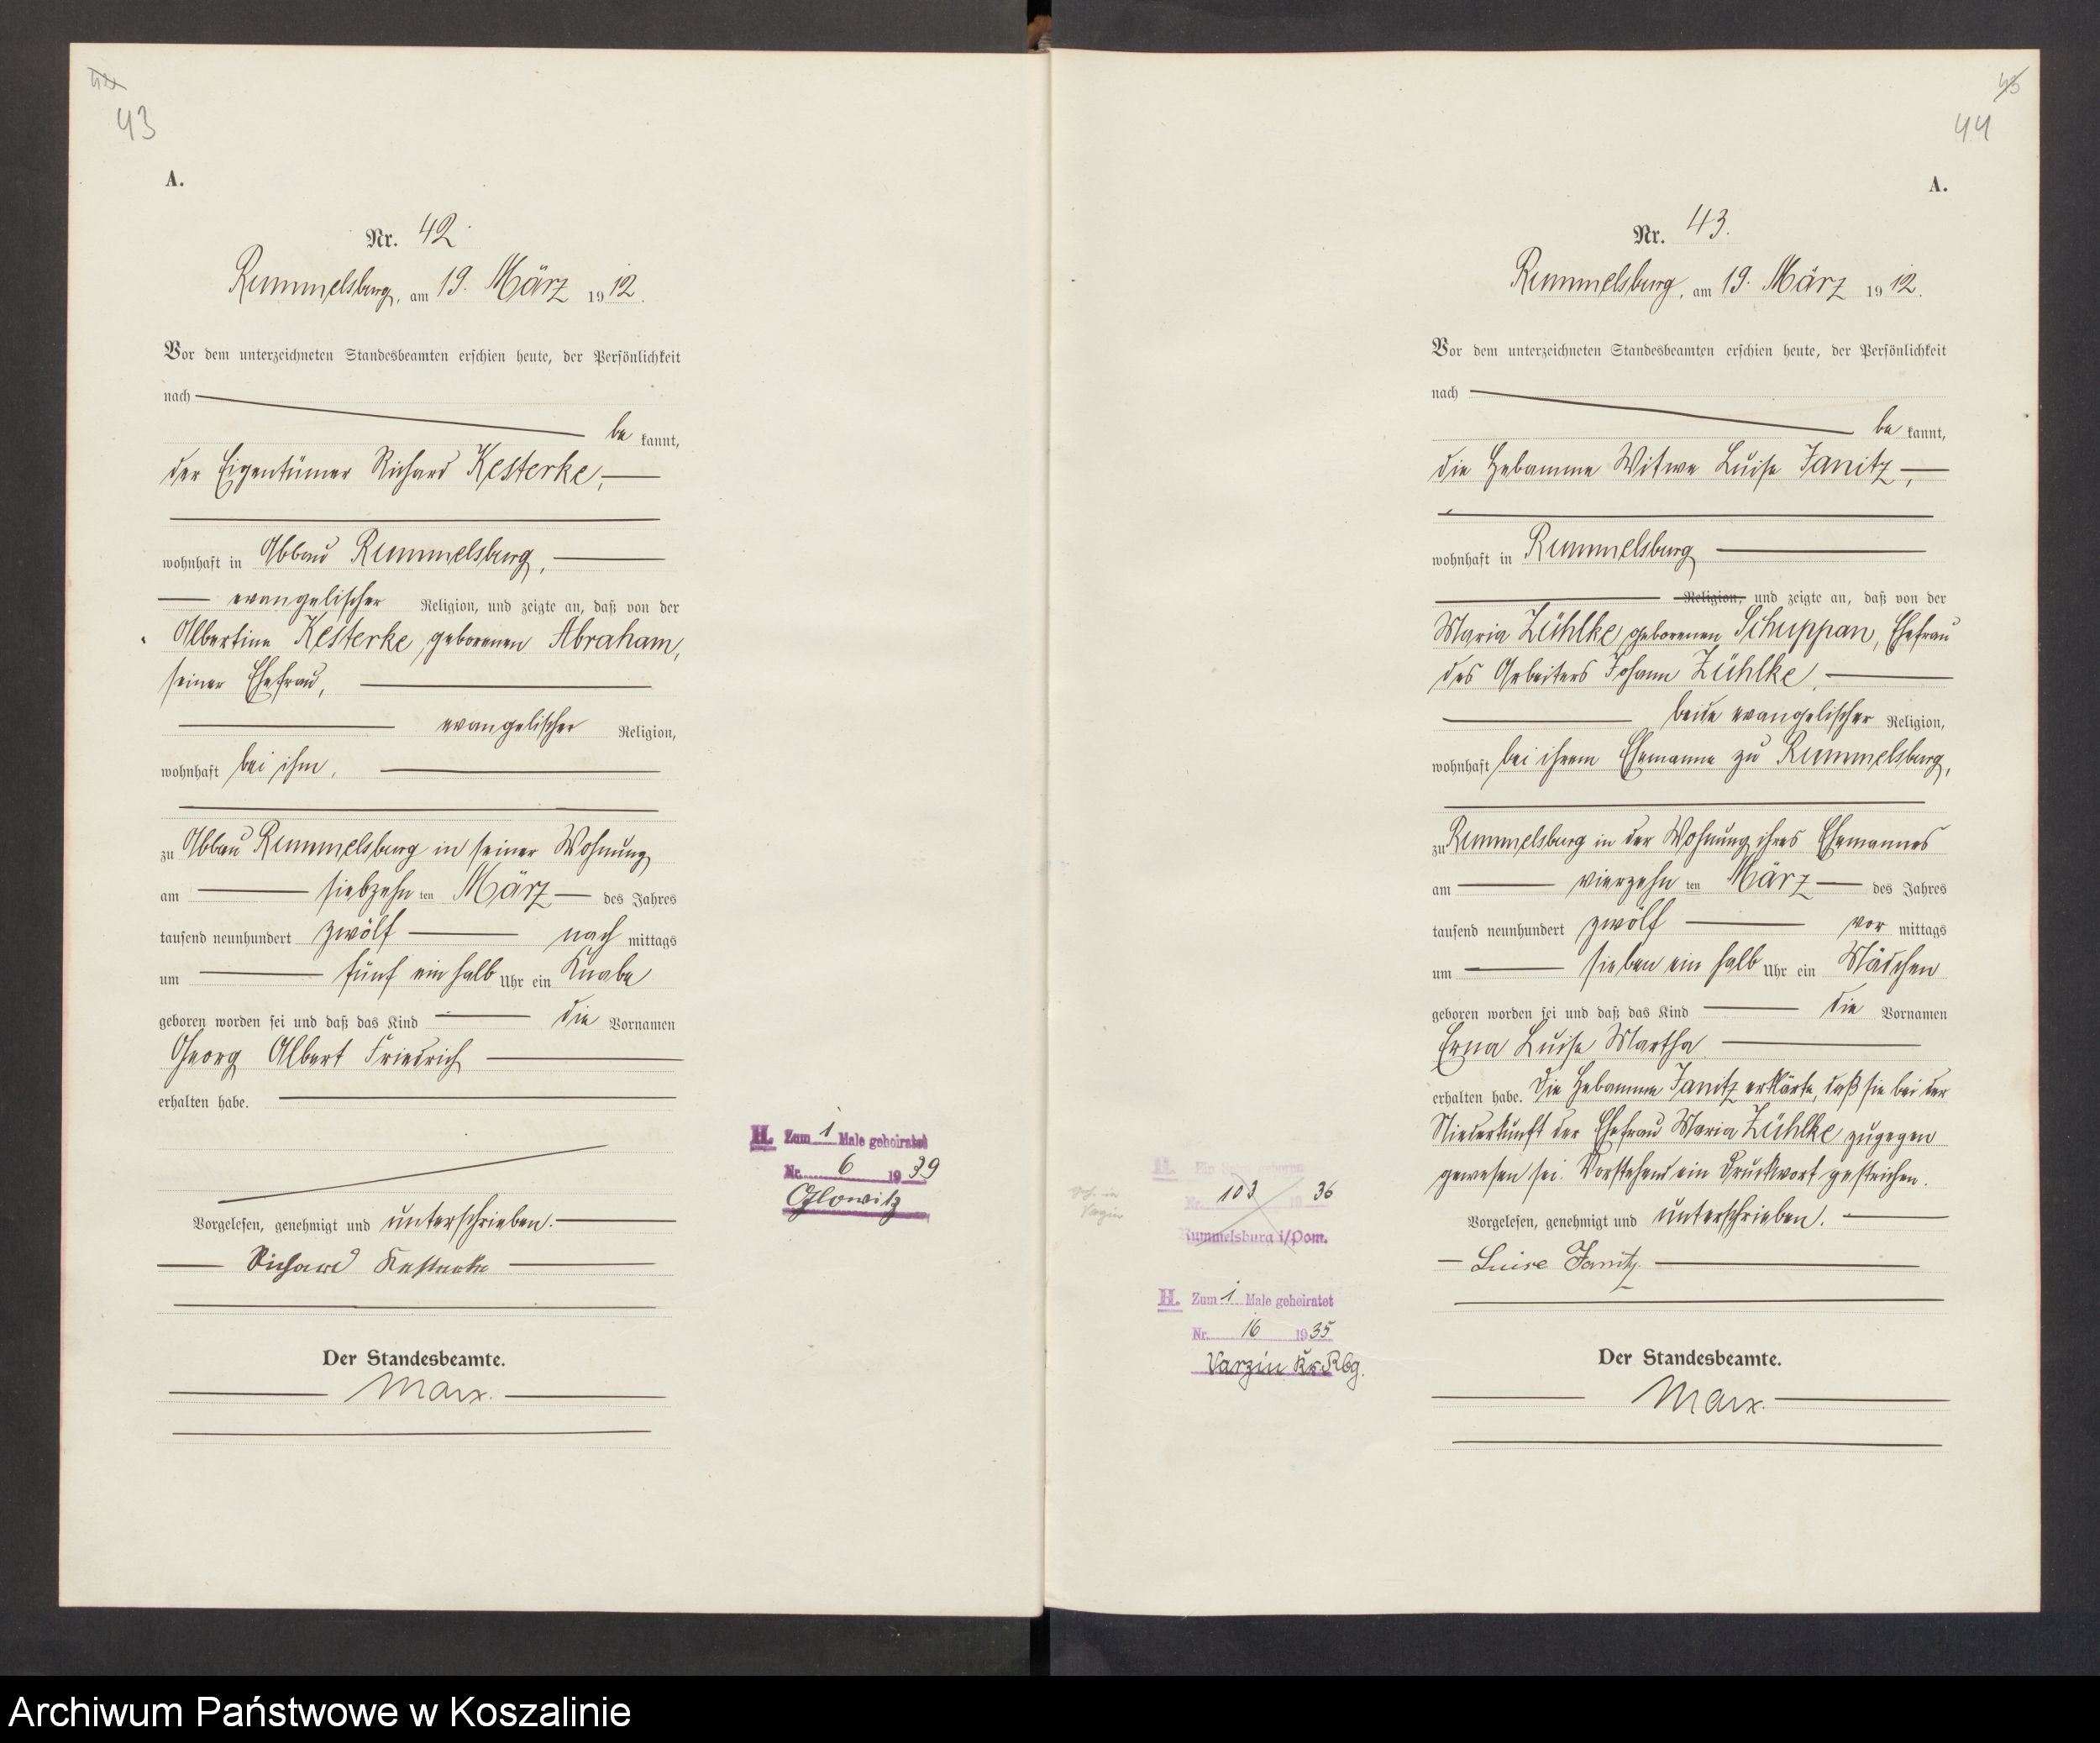 43
A.
Nr. 42
Rummelsburg, am 19. März 1912.
Vor dem unterzeichneten Standesbeamten erschien heute, der Persönlichkeit
nach
bekannt,
der Eigentümer Richard Kesterke,
wohnhaft in Abbau Rummelsburg,
evangelischer Religion, und zeigte an, daß von der
Albertine Kesterke, geborenen Abraham,
seiner Ehefrau,
evangelischer Religion,
wohnhaft bei ihm,
zu Abbau Rummelsburg in seiner Wohnung
am siebzehnten März des Jahres
tausend neunhundert zwölf nachmittags
um fünf ein halb Uhr ein Knabe
geboren worden sei und daß das Kind die Vornamen
Georg Albert Friedrich
erhalten habe.
Vorgelesen, genehmigt und unterschrieben.
Richard Kesterke
Der Standesbeamte.
Marx.
H. Zum 1 Male geheiratet
Nr. 6 1939
Glowitz
45
44
A.
Nr. 43.
Rummelsburg, am 19. März 1912.
Vor dem unterzeichneten Standesbeamten erschien heute, der Persönlichkeit
nach
bekannt,
die Hebamme Witwe Luise Janitz,
wohnhaft in Rummelsburg
Religion, und zeigte an, daß von der
Maria Zühlke geborenen Schuppan, Ehefrau
des Arbeiters Johann Zühlke,
beide evangelischer Religion,
wohnhaft bei ihrem Ehemanne zu Rummelsburg,
zu Rummelsburg in der Wohnung ihres Ehemannes
am vierzehnten März des Jahres
tausend neunhundert zwölf vormittags
um sieben ein halb Uhr ein Mädchen
geboren worden sei und daß das Kind die Vornamen
Erna Luise Martha
erhalten habe. Die Hebamme Janitz erklärte, daß sie bei der
Niederkunft der Ehefrau Maria Zühlke zugegen
gewesen sei. Vorstehend ein Druckwort gestrichen.
Vorgelesen, genehmigt und unterschrieben.
Luise Janitz
Der Standesbeamte.
Marx.
H. Ein Sohn geboren
Nr. 103 1936
Rummelsburg i/Pom.
H. Zum 1 Male geheiratet
Nr. 16 1935
Varzin Kr. Rbg.
Archiwum Państwowe w Koszalinie